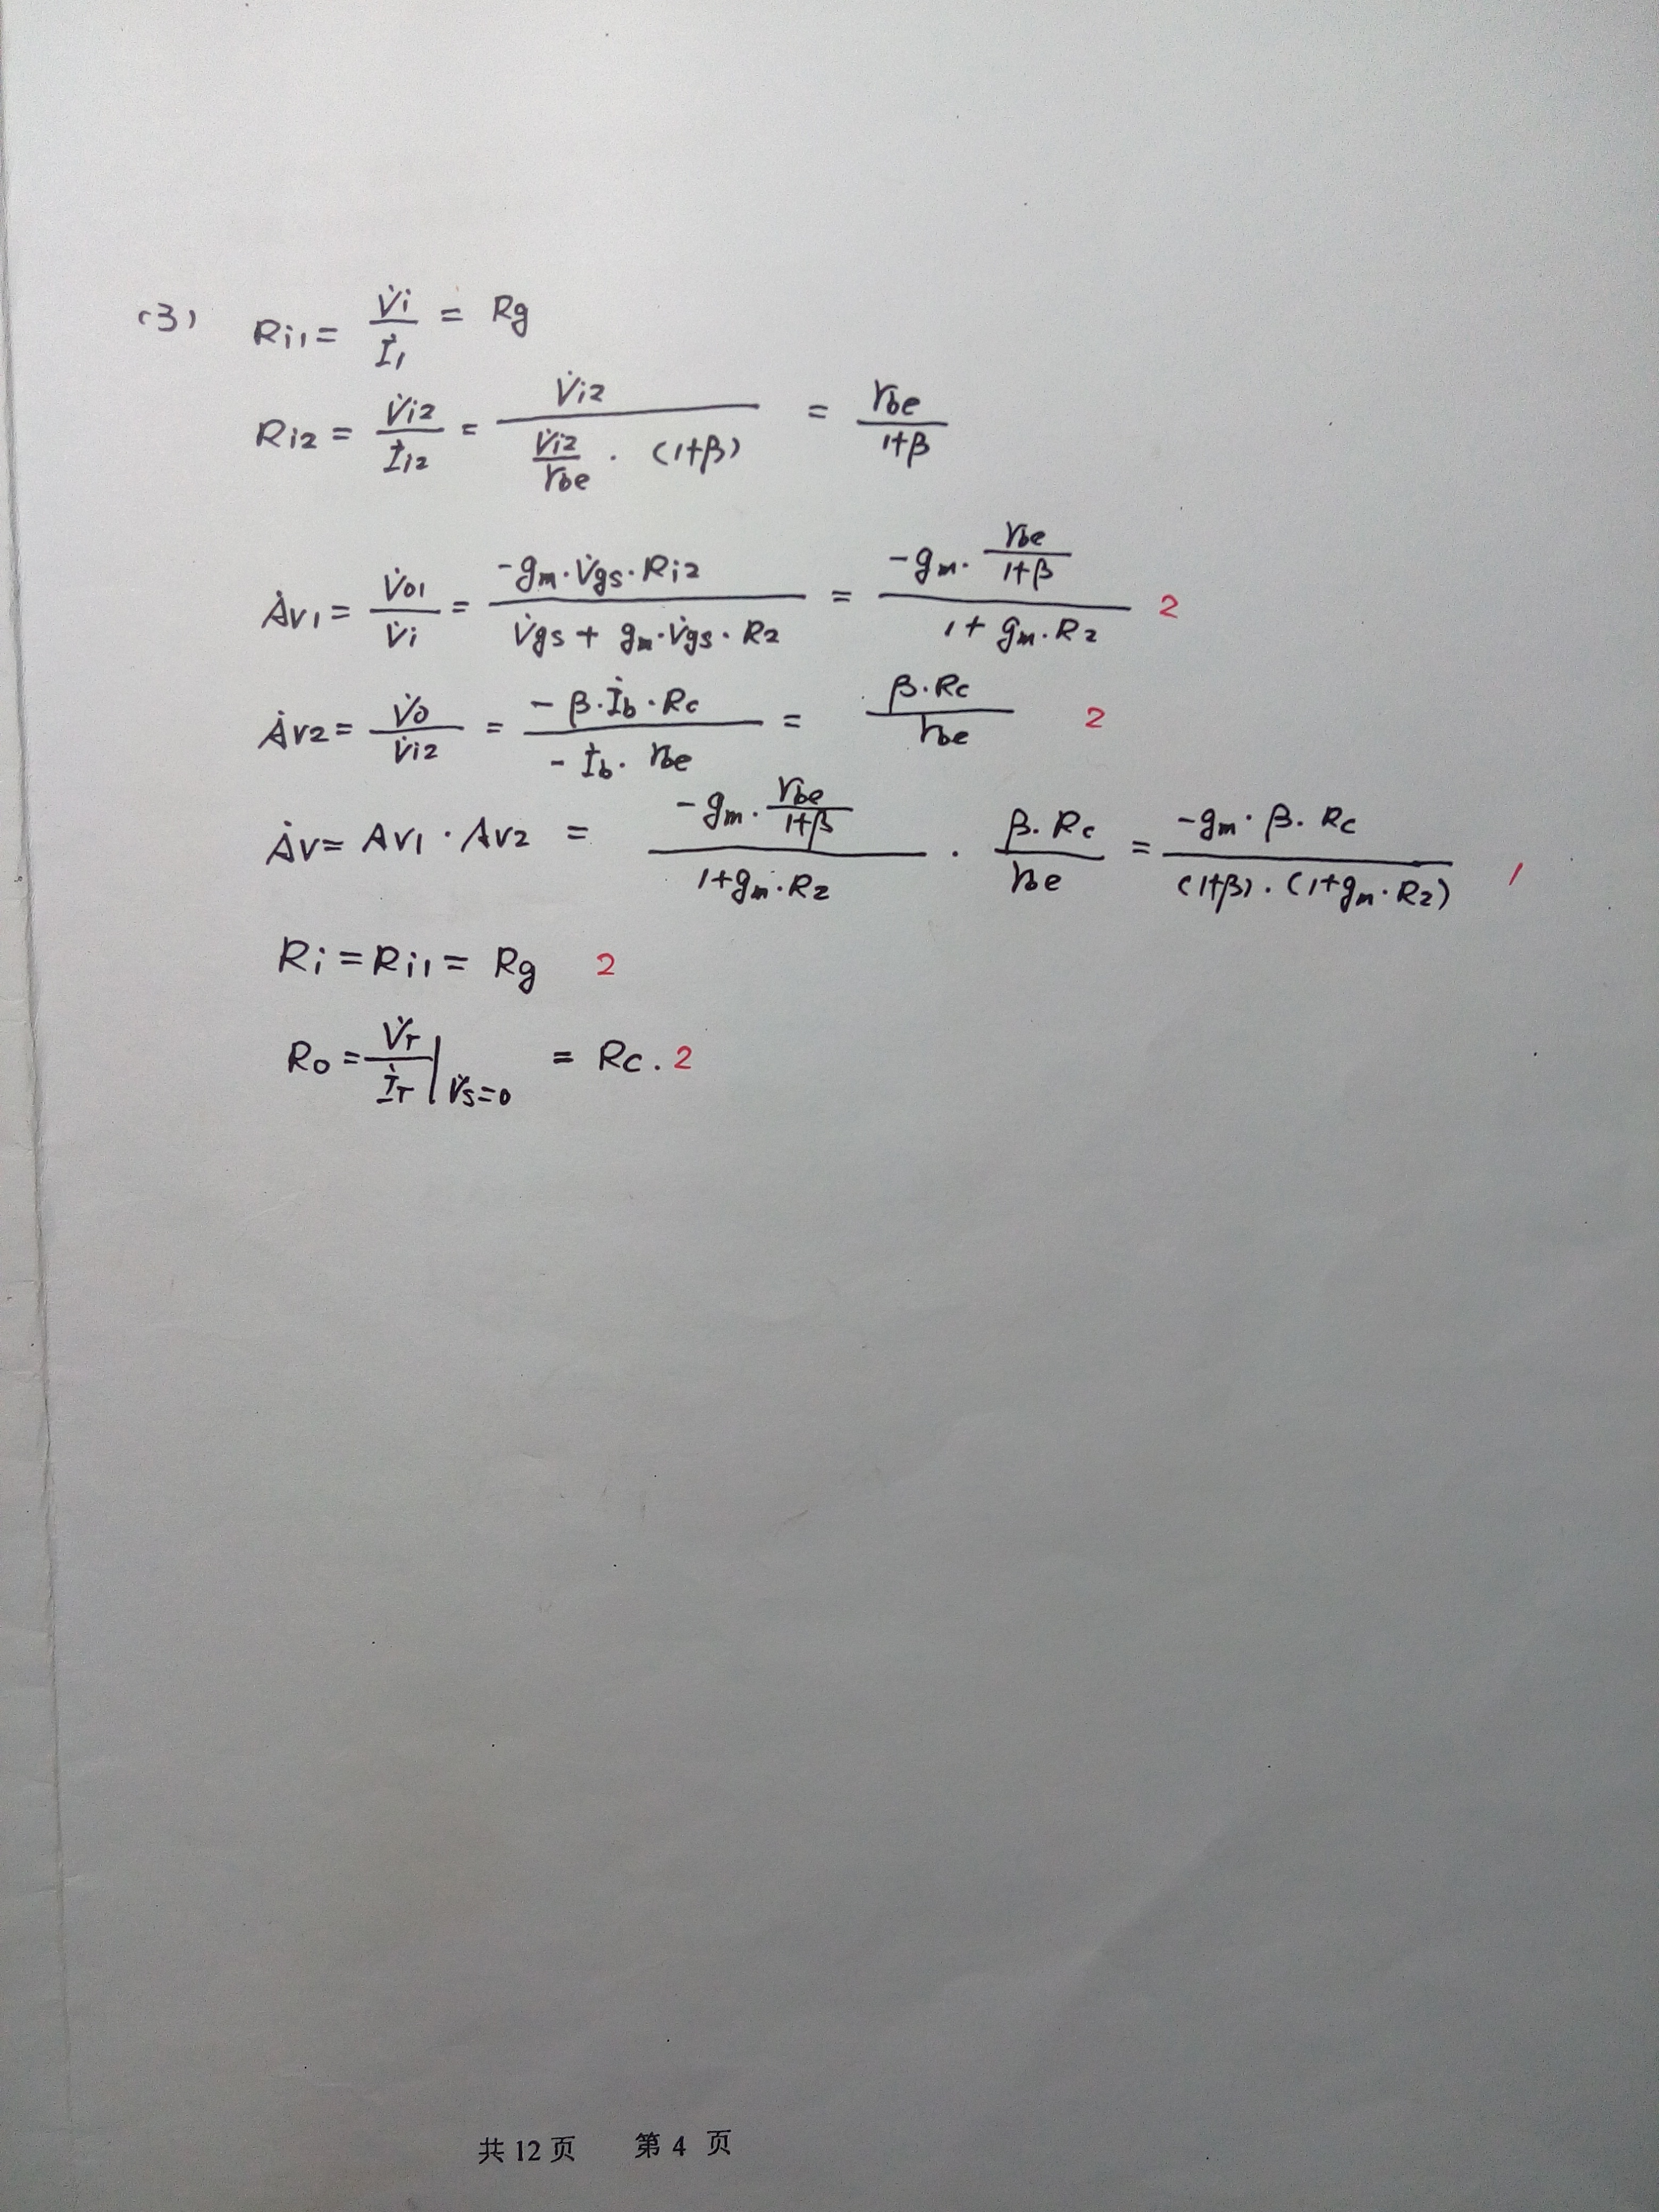 (3) Ri1 = V̇i / İ1 = Rg
Ri2 = V̇i2 / İi2 = V̇i2 / (V̇i2/rbe · (1+β)) = rbe / (1+β)
Ȧv1 = V̇o1 / V̇i = (-gm·V̇gs·Ri2) / (V̇gs + gm·V̇gs·R2) = (-gm · rbe/(1+β)) / (1 + gm·R2) 2
Ȧv2 = V̇o / V̇i2 = (-β·İb·Rc) / (-İb·rbe) = β·Rc / rbe 2
Ȧv = Av1 · Av2 = (-gm · rbe/(1+β)) / (1+gm·R2) · β·Rc / rbe = (-gm·β·Rc) / ((1+β)·(1+gm·R2)) 1
Ri = Ri1 = Rg 2
Ro = V̇T / İT | V̇s=0 = Rc. 2
共 12 页 第 4 页